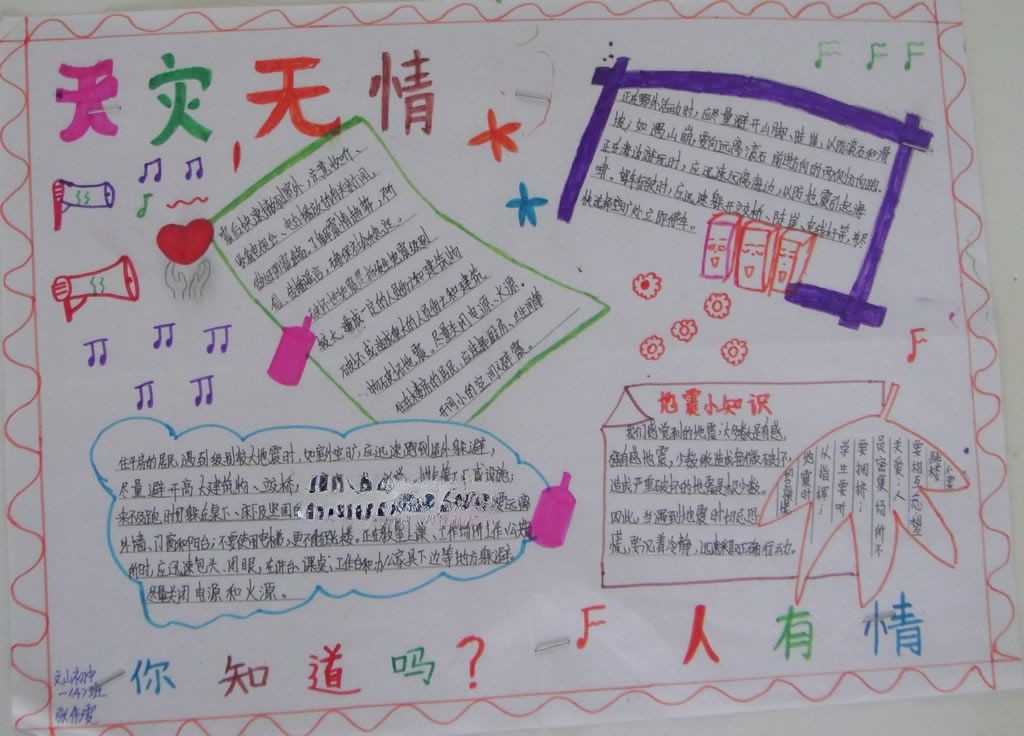 天灾无情
正在野外活动时，应尽量避开山脚、陡崖，以防滚石和滑
坡；如遇山崩，要向远离滚石前进方向的两侧方向跑。
正在海边游玩时，应迅速远离海边，以防地震引起海
啸。驾车行驶时，应迅速躲开立交桥、陡崖、电线杆等，并尽
快选择空旷处立即停车。
震后快速撤到室外，注意收听、
信、传播谣言，确保
破坏性地震
较大，造成一定的人员伤亡和建筑物
破坏或造成重大的人员伤亡和建筑
物破坏的地震。尽量关闭电源、火源。
住在楼房的居民，应选择厨房、卫生间等
开间小的空间避震。
在平房的居民遇到级别较大地震时，如室外空旷，应迅速跑到屋外躲避，
尽量避开高大建筑物、立交桥，
来不及跑时可躲在桌下、床下及坚固的 要远离
外墙、门窗和阳台；不要使用电梯，更不能跳楼。正在教室上课、工作场所工作、公共场
所时，应迅速包头、闭眼，在讲台、课桌、工作台和办公家具下边等地方躲避。
尽量关闭电源和火源。
地震小知识
我们感觉到的地震大多数是有感，
强有感地震，少数能造成轻微破坏，
造成严重破坏的地震是极少数。
因此，当遇到地震时切忌恐
慌，要沉着冷静，迅速采取正确行动。
要相互
关照；人
员密集场所不
要拥挤；
学生要听
从指挥；
地震时
你知道吗？
人有情
文山初中
一(4)班